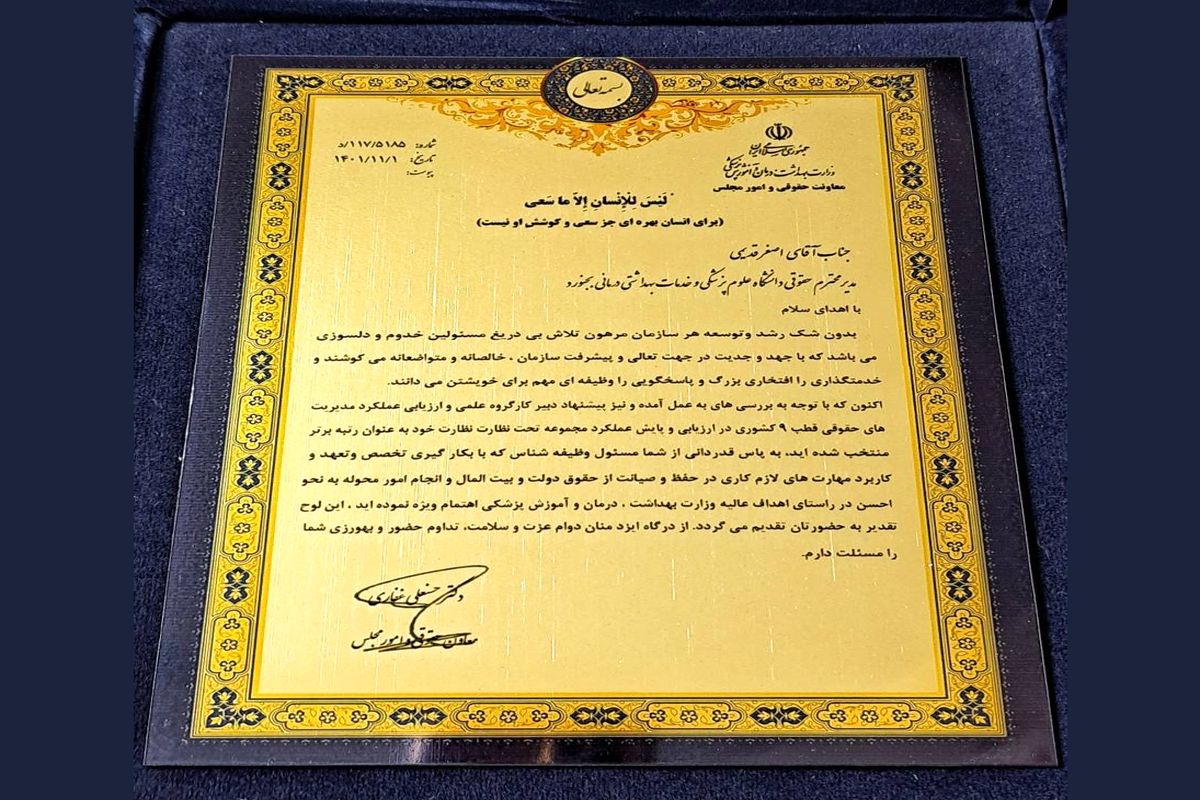 بسمه تعالی
جمهوری اسلامی ایران
وزارت بهداشت، درمان و آموزش پزشکی
معاونت حقوقی و امور مجلس
شماره: ۱۱۷/۵۱۸۵/د
تاریخ: ۱۴۰۱/۱۱/۱
پیوست:
لَیْسَ لِلْإِنْسانِ إِلاَّ ما سَعی
(برای انسان بهره ای جز سعی و کوشش او نیست)
جناب آقای اصغر قدیمی
مدیر محترم حقوقی دانشگاه علوم پزشکی و خدمات بهداشتی درمانی بجنورد
با اهدای سلام
بدون شک رشد وتوسعه هر سازمان مرهون تلاش بی دریغ مسئولین خدوم و دلسوزی
می باشد که با جهد و جدیت در جهت تعالی و پیشرفت سازمان ، خالصانه و متواضعانه می کوشند و
خدمتگذاری را افتخاری بزرگ و پاسخگویی را وظیفه ای مهم برای خویشتن می دانند.
اکنون که با توجه به بررسی های به عمل آمده و نیز پیشنهاد دبیر کارگروه علمی و ارزیابی عملکرد مدیریت
های حقوقی قطب ۹ کشوری در ارزیابی و پایش عملکرد مجموعه تحت نظارت نظارت خود به عنوان رتبه برتر
منتخب شده اید، به پاس قدردانی از شما مسئول وظیفه شناس که با بکار گیری تخصص وتعهد و
کاربرد مهارت های لازم کاری در حفظ و صیانت از حقوق دولت و بیت المال و انجام امور محوله به نحو
احسن در راستای اهداف عالیه وزارت بهداشت ، درمان و آموزش پزشکی اهتمام ویژه نموده اید ، این لوح
تقدیر به حضورتان تقدیم می گردد. از درگاه ایزد منان دوام عزت و سلامت، تداوم حضور و بهورزی شما
را مسئلت دارم.
دکتر حسنعلی غفاری
معاون حقوقی و امور مجلس